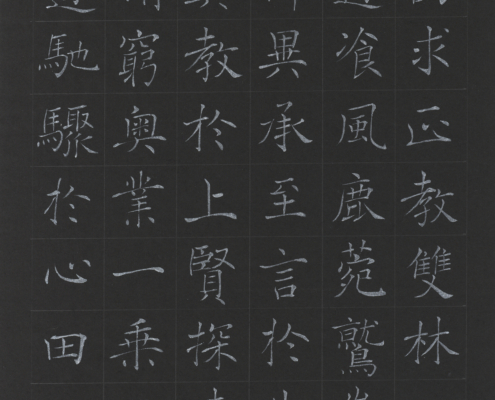 求正教雙林
飡風鹿菀鷲
異承至言於
教於上賢探
窮奧業一乘
馳驟於心田